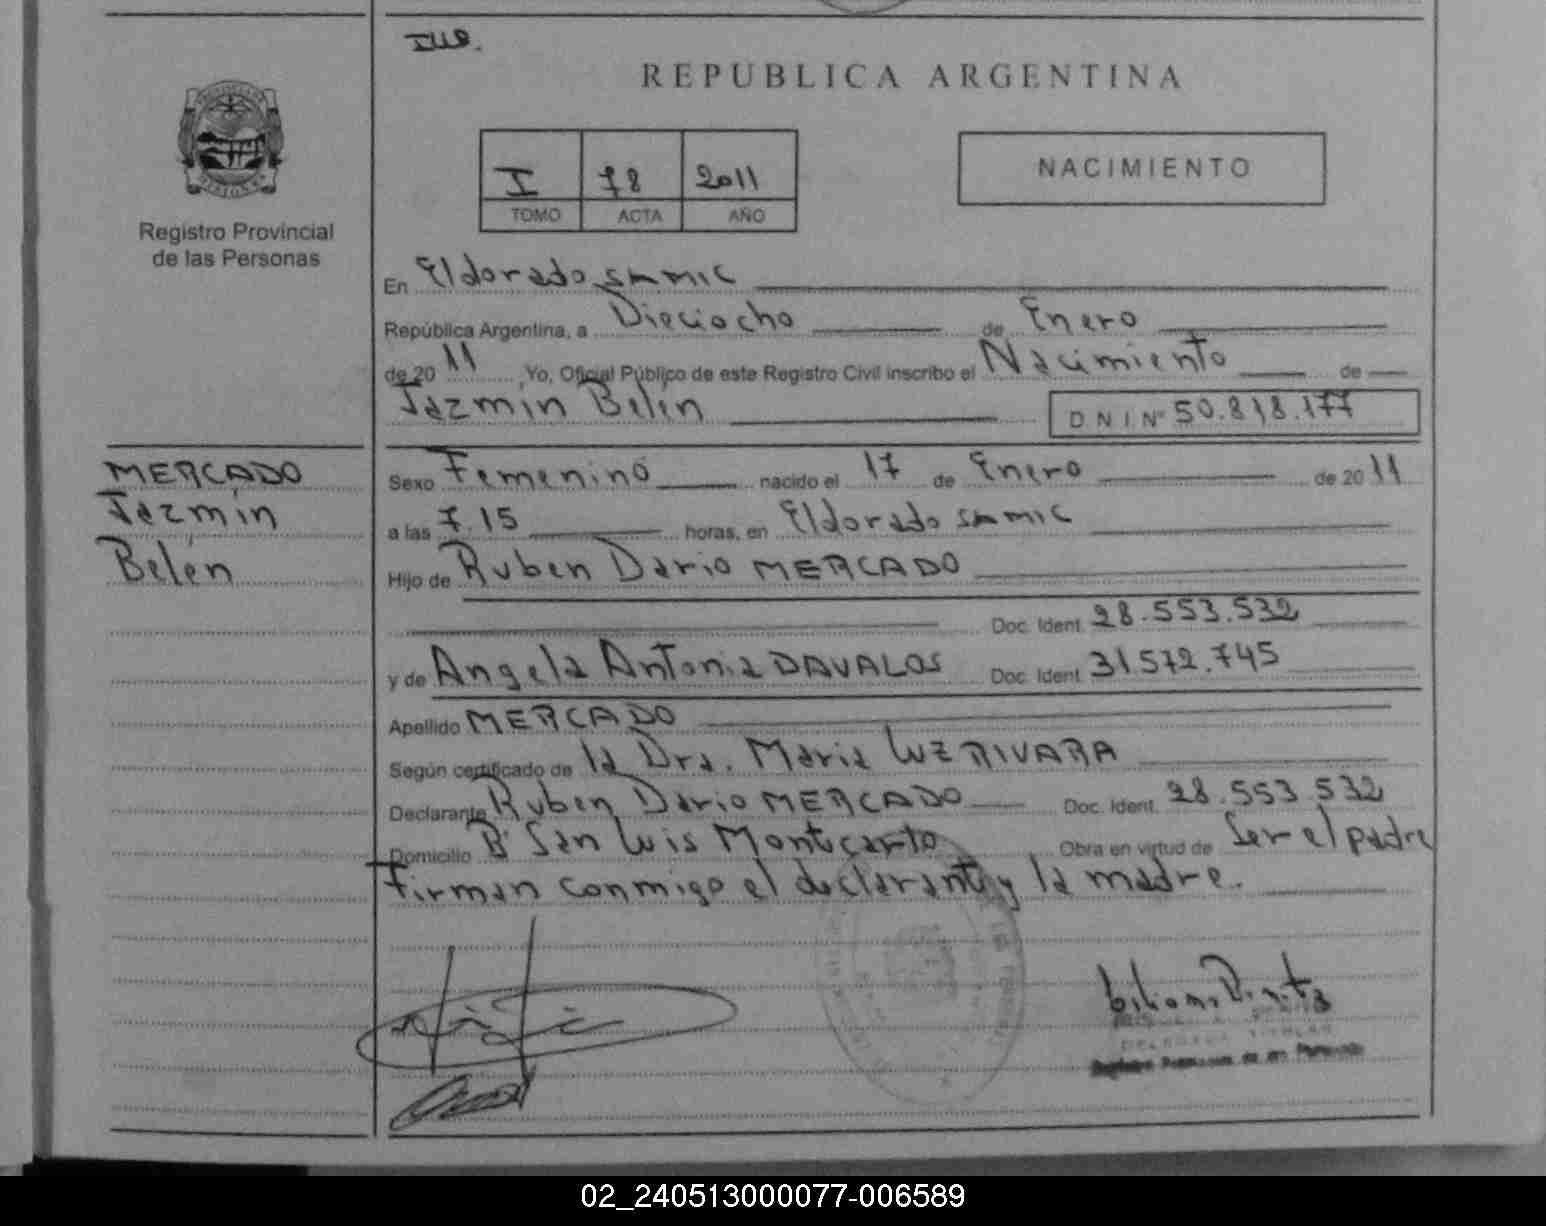 REPUBLICA ARGENTINA
I 78 2011
TOMO ACTA AÑO
NACIMIENTO
Registro Provincial
de las Personas
En Eldorado SAMIC
República Argentina, a Dieciocho de Enero
de 20 11 , Yo, Oficial Público de este Registro Civil inscribo el Nacimiento de
Jazmin Belén D N I Nº 50.818.177
MERCADO
Jazmín
Belén
Sexo Femenino nacido el 17 de Enero de 20 11
a las 7.15 horas, en Eldorado SAMIC
Hijo de Ruben Dario MERCADO
Doc. Ident. 28.553.532
y de Angela Antonia DAVALOS Doc. Ident. 31.572.745
Apellido MERCADO
Según certificado de la Dra. Maria Luz RIVARA
Declarante Ruben Dario MERCADO Doc. Ident. 28.553.532
Domicilio Bº San Luis Montecarlo Obra en virtud de Ser el padre
Firman conmigo el declarante y la madre.
02_240513000077-006589